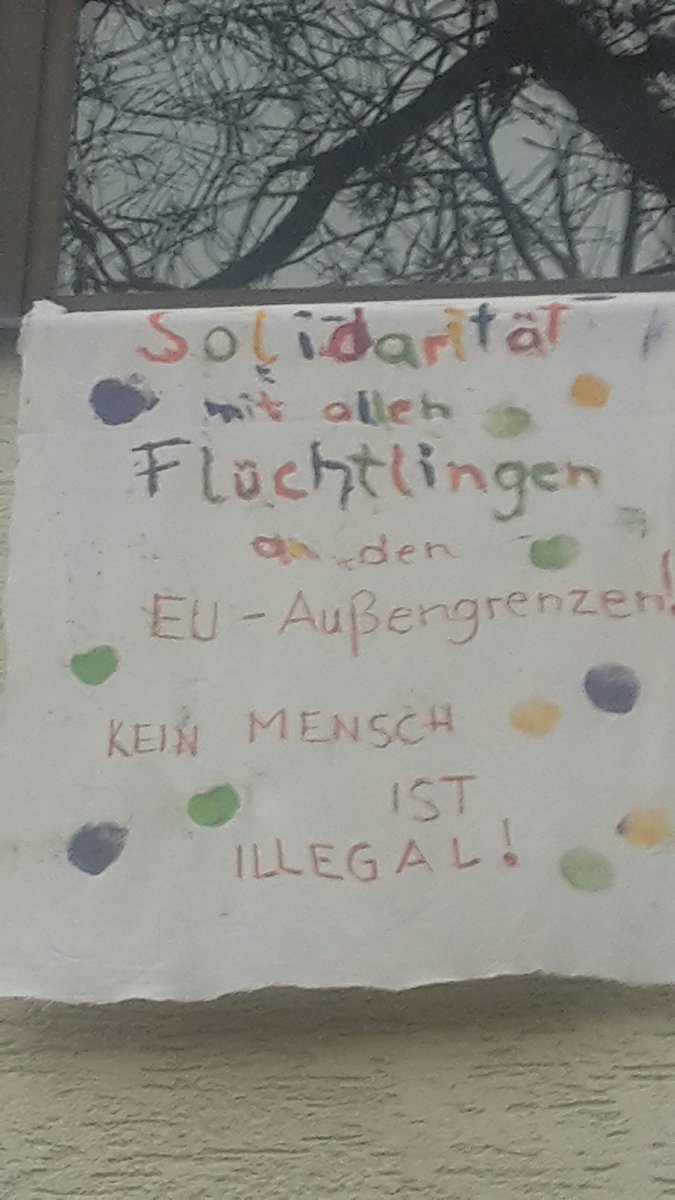 Solidarität
mit allen
Flüchtlingen
an den
EU-Außengrenzen!
KEIN MENSCH
IST
ILLEGAL!